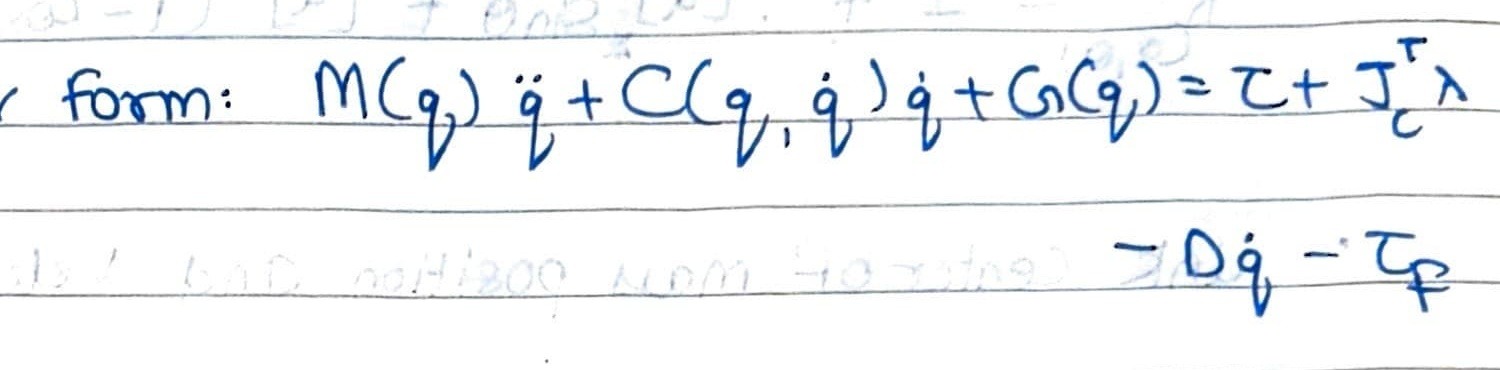 form: M(q) q̈ + C(q, q̇) q̇ + G(q) = τ + J_c^T λ
- D q̇ - τ_f